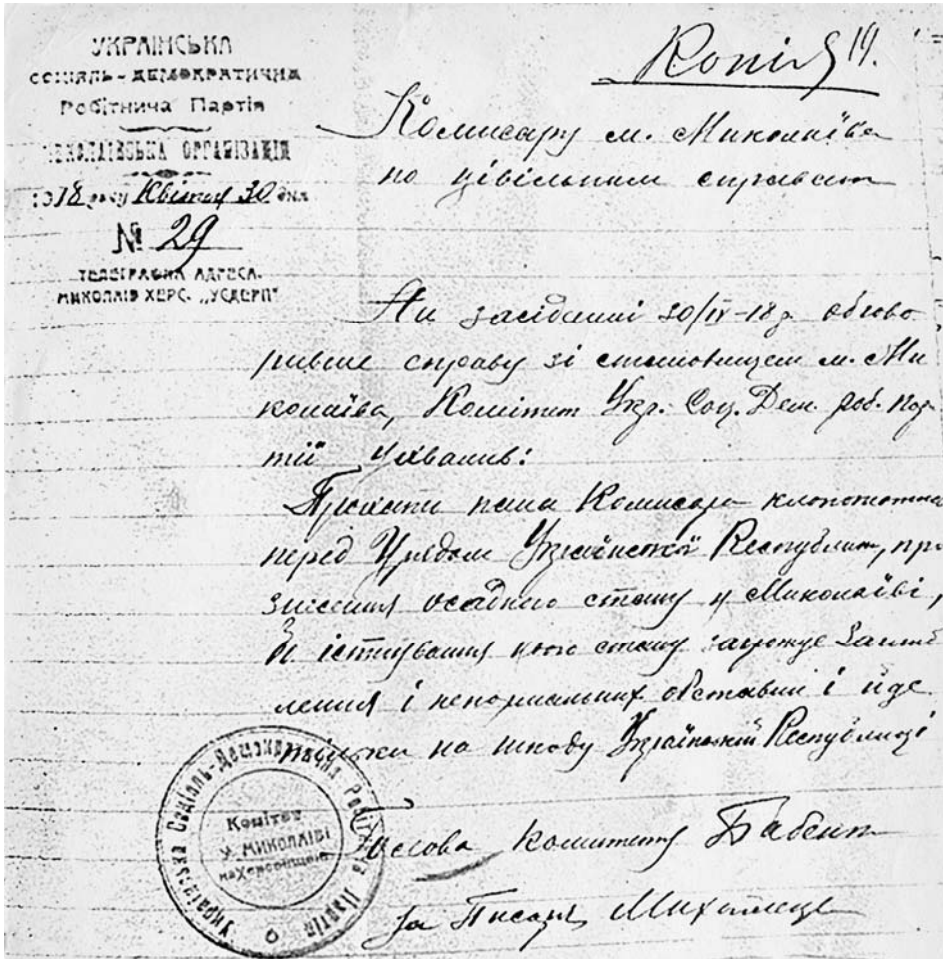 УКРАІНСЬКА
СОЦІЯЛЬ-ДЕМОКРАТИЧНА
Робітнича Партія
МИКОЛАІВСЬКА ОРГАНІЗАЦІЯ
1918 року Квітня 30 дня
№ 29
ТЕЛЕГРАФНА АДРЕСА.
МИКОЛАІВ ХЕРС. „УСДЕРП"
Копія 19.
Комисару м. Миколаїва
по цівільним справам
На засіданні 30/IV-18 р. обгово
ривше справу зі становищем м. Ми
колаїва, Комітет Укр. Соц. Дем. роб. Пар
тії ухвалив:
Прохати пана Комисара клопотатись
перед Урядом Української Республики, про
знесення осадного стану у Миколаїві,
бо істнування цього стану загрожує
і ненормальних обставин і йде
тільки на шкоду Українській Республиці
Голова Комитету
За Писаря
Українська Соціаль-Демократична Робітнича Партія
Комітет
у МИКОЛАІВІ
на Херсонщині